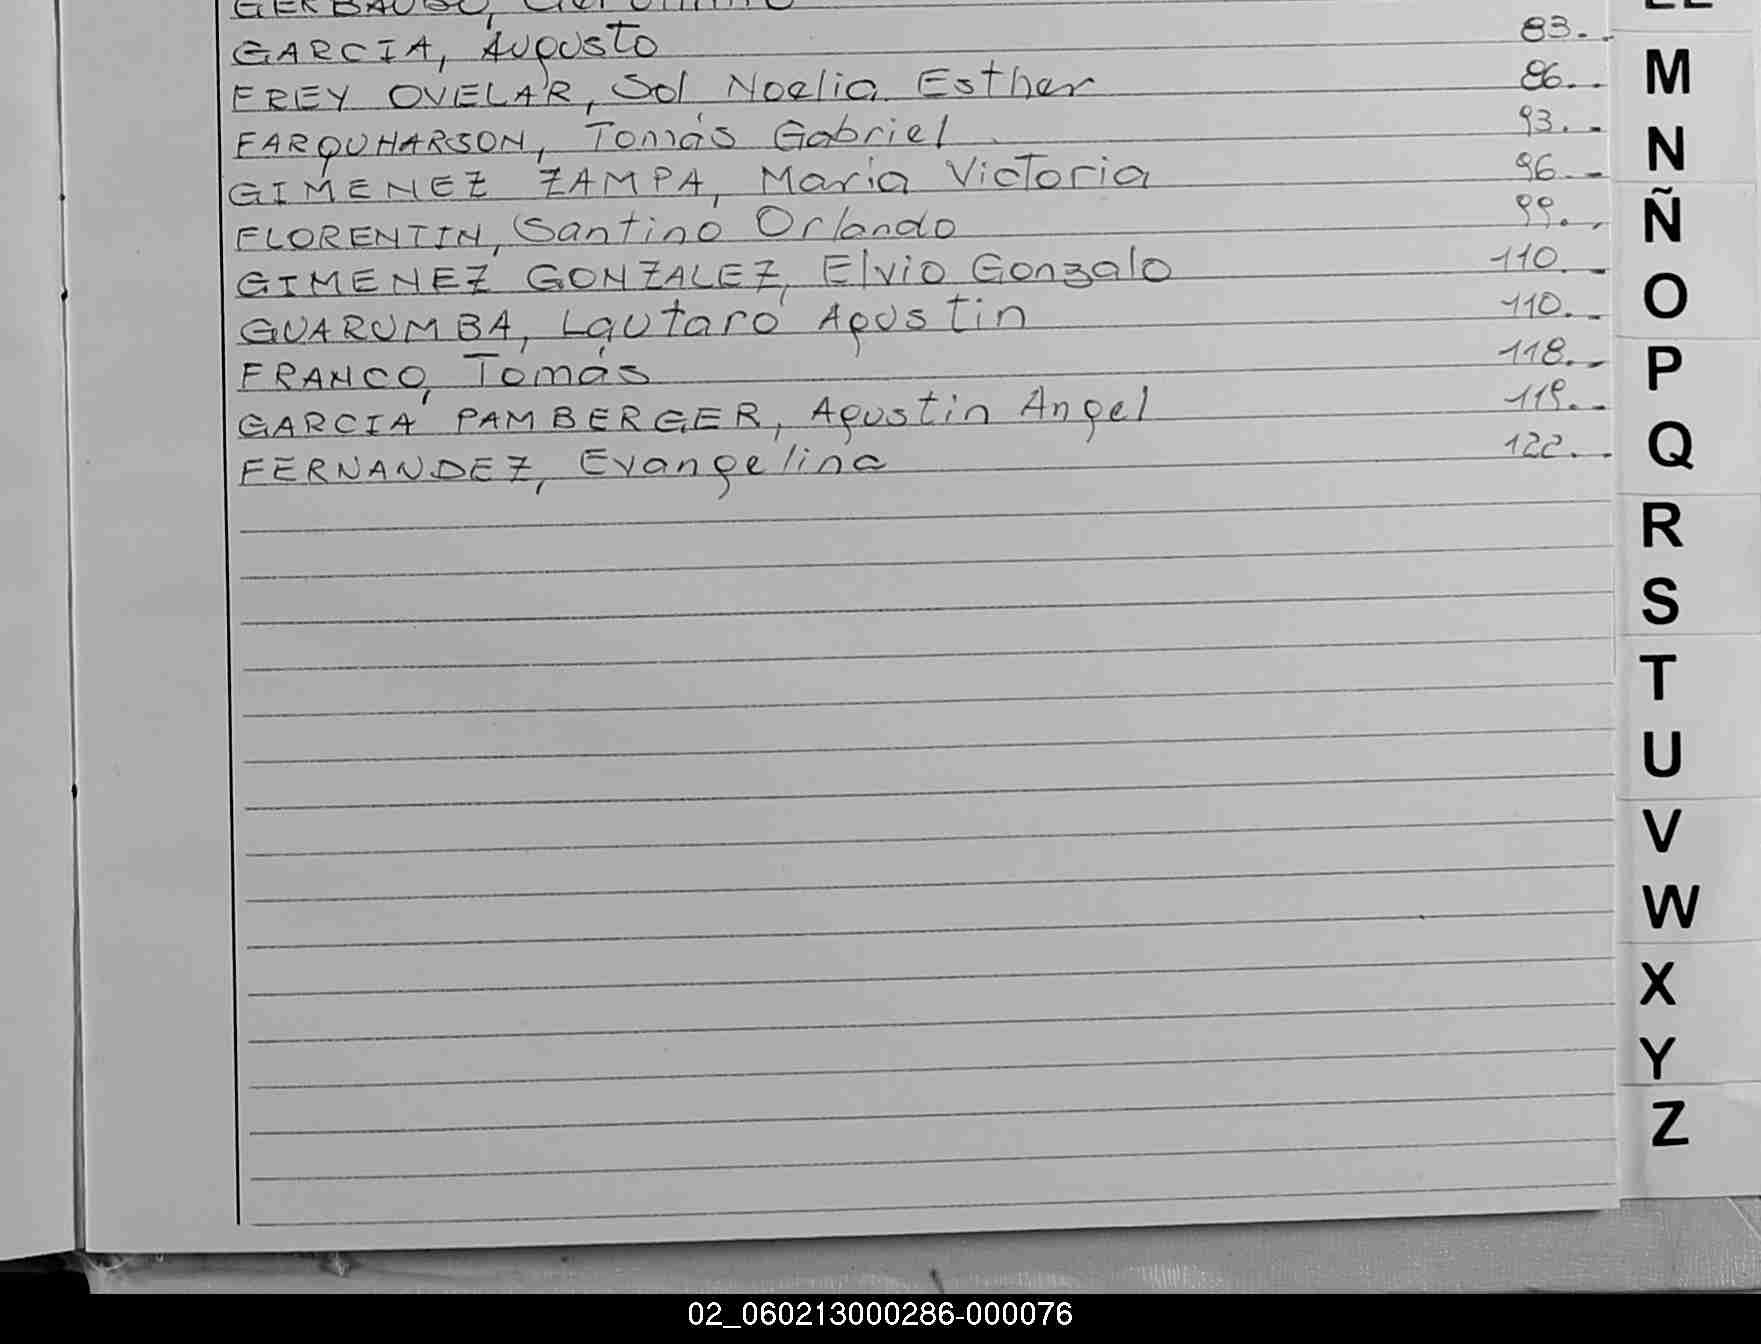 GERBAUDO, Gerónimo
GARCIA, Augusto 83.-
FREY OVELAR, Sol Noelia Esther 86.-
FARQUHARSON, Tomás Gabriel 93.-
GIMENEZ ZAMPA, María Victoria 96.-
FLORENTIN, Santino Orlando 99.-
GIMENEZ GONZALEZ, Elvio Gonzalo 110.-
GUARUMBA, Lautaro Agustin 110.-
FRANCO, Tomás 118.-
GARCIA PAMBERGER, Agustin Angel 119.-
FERNANDEZ, Evangelina 122.-
LL
M
N
Ñ
O
P
Q
R
S
T
U
V
W
X
Y
Z
02_060213000286-000076